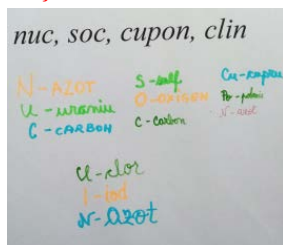 nuc, soc, cupon, clin
N-AZOT
U-uraniu
C-CARBON
S-sulf
O-OXIGEN
C-carbon
Cu-cupru
Po-poloniu
N-azot
Cl-clor
I-iod
N-Azot